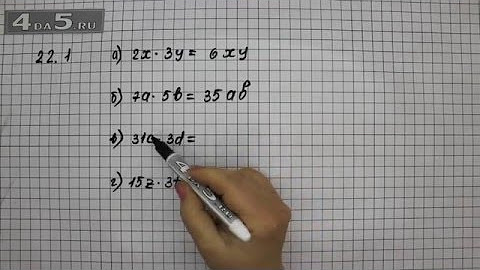 4DA5.RU
22.1 а) 2x · 3y = 6xy
б) 7a · 5b = 35ab
в) 31c · 3d =
г) 15z · 3